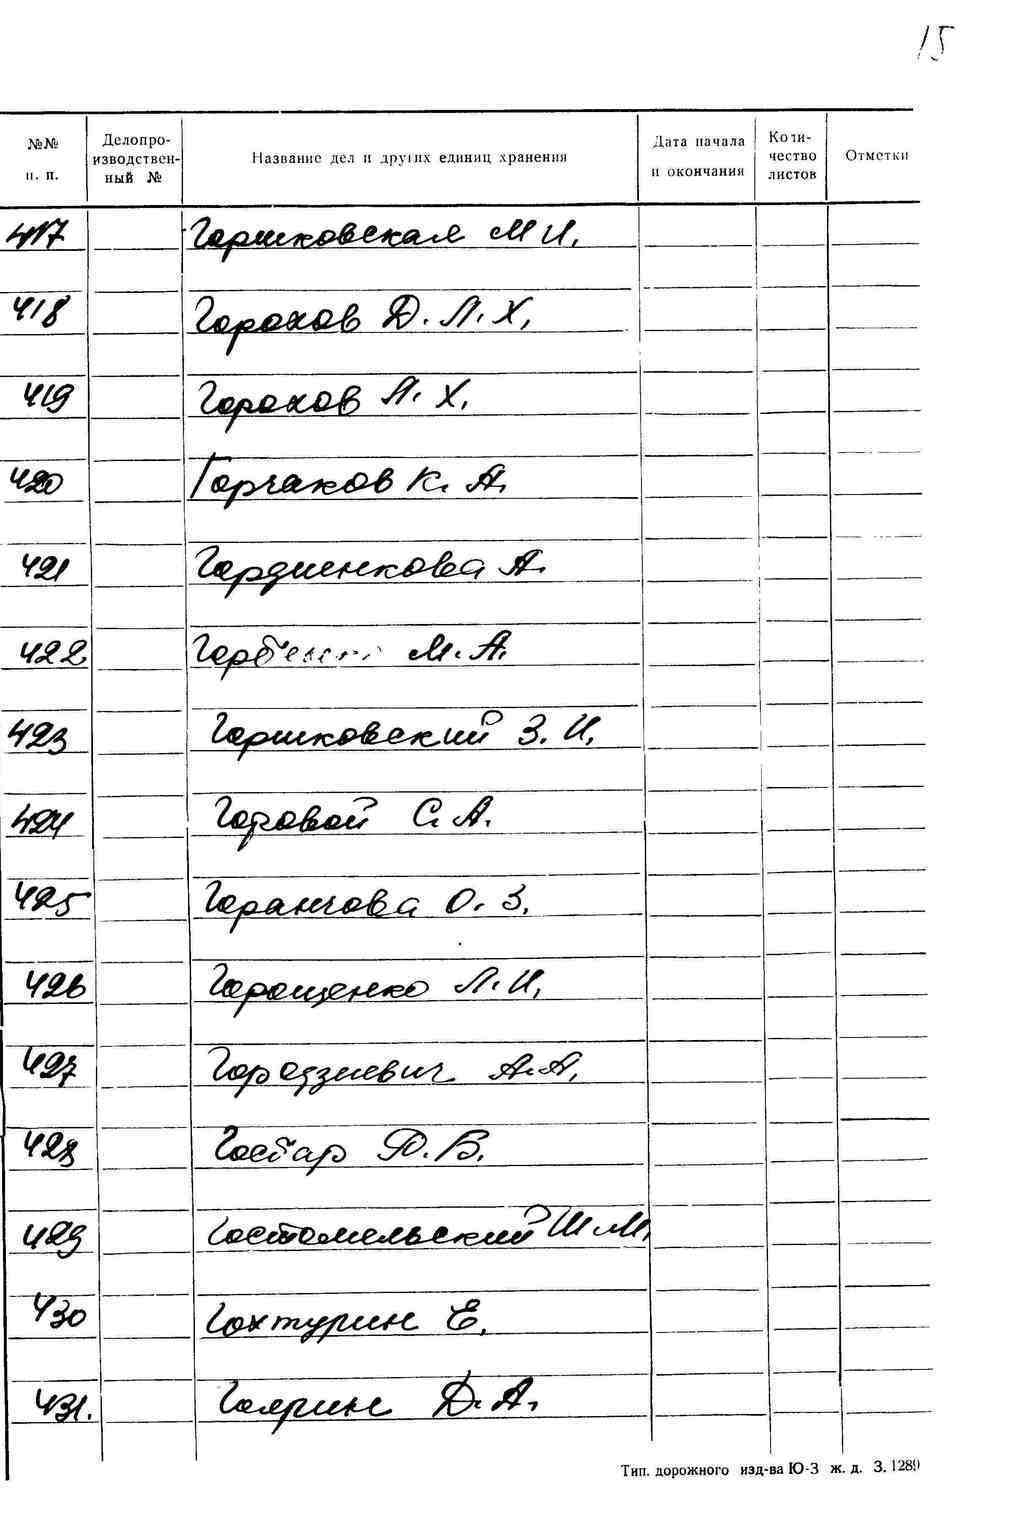 15
№№ п. п. Делопроизводственный № Название дел и других единиц хранения Дата начала и окончания Количество листов Отметки
417 Горшковская М И.
418 Горохов Д. Л. Х.
419 Горохов Л. Х.
420 Горчаков К. А.
421 Гордиенкова А.
422 М. А.
423 Горшковский З. И.
424 Горовой С. А.
425 О. З.
426 Горощенко Л. И.
427 Городзиевич А. А.
428 В.
429 Гостомельский Ш М.
430 Гохтурин Е.
431. Гоярин Д. А.
Тип. дорожного изд-ва Ю-З ж. д. З. 1289